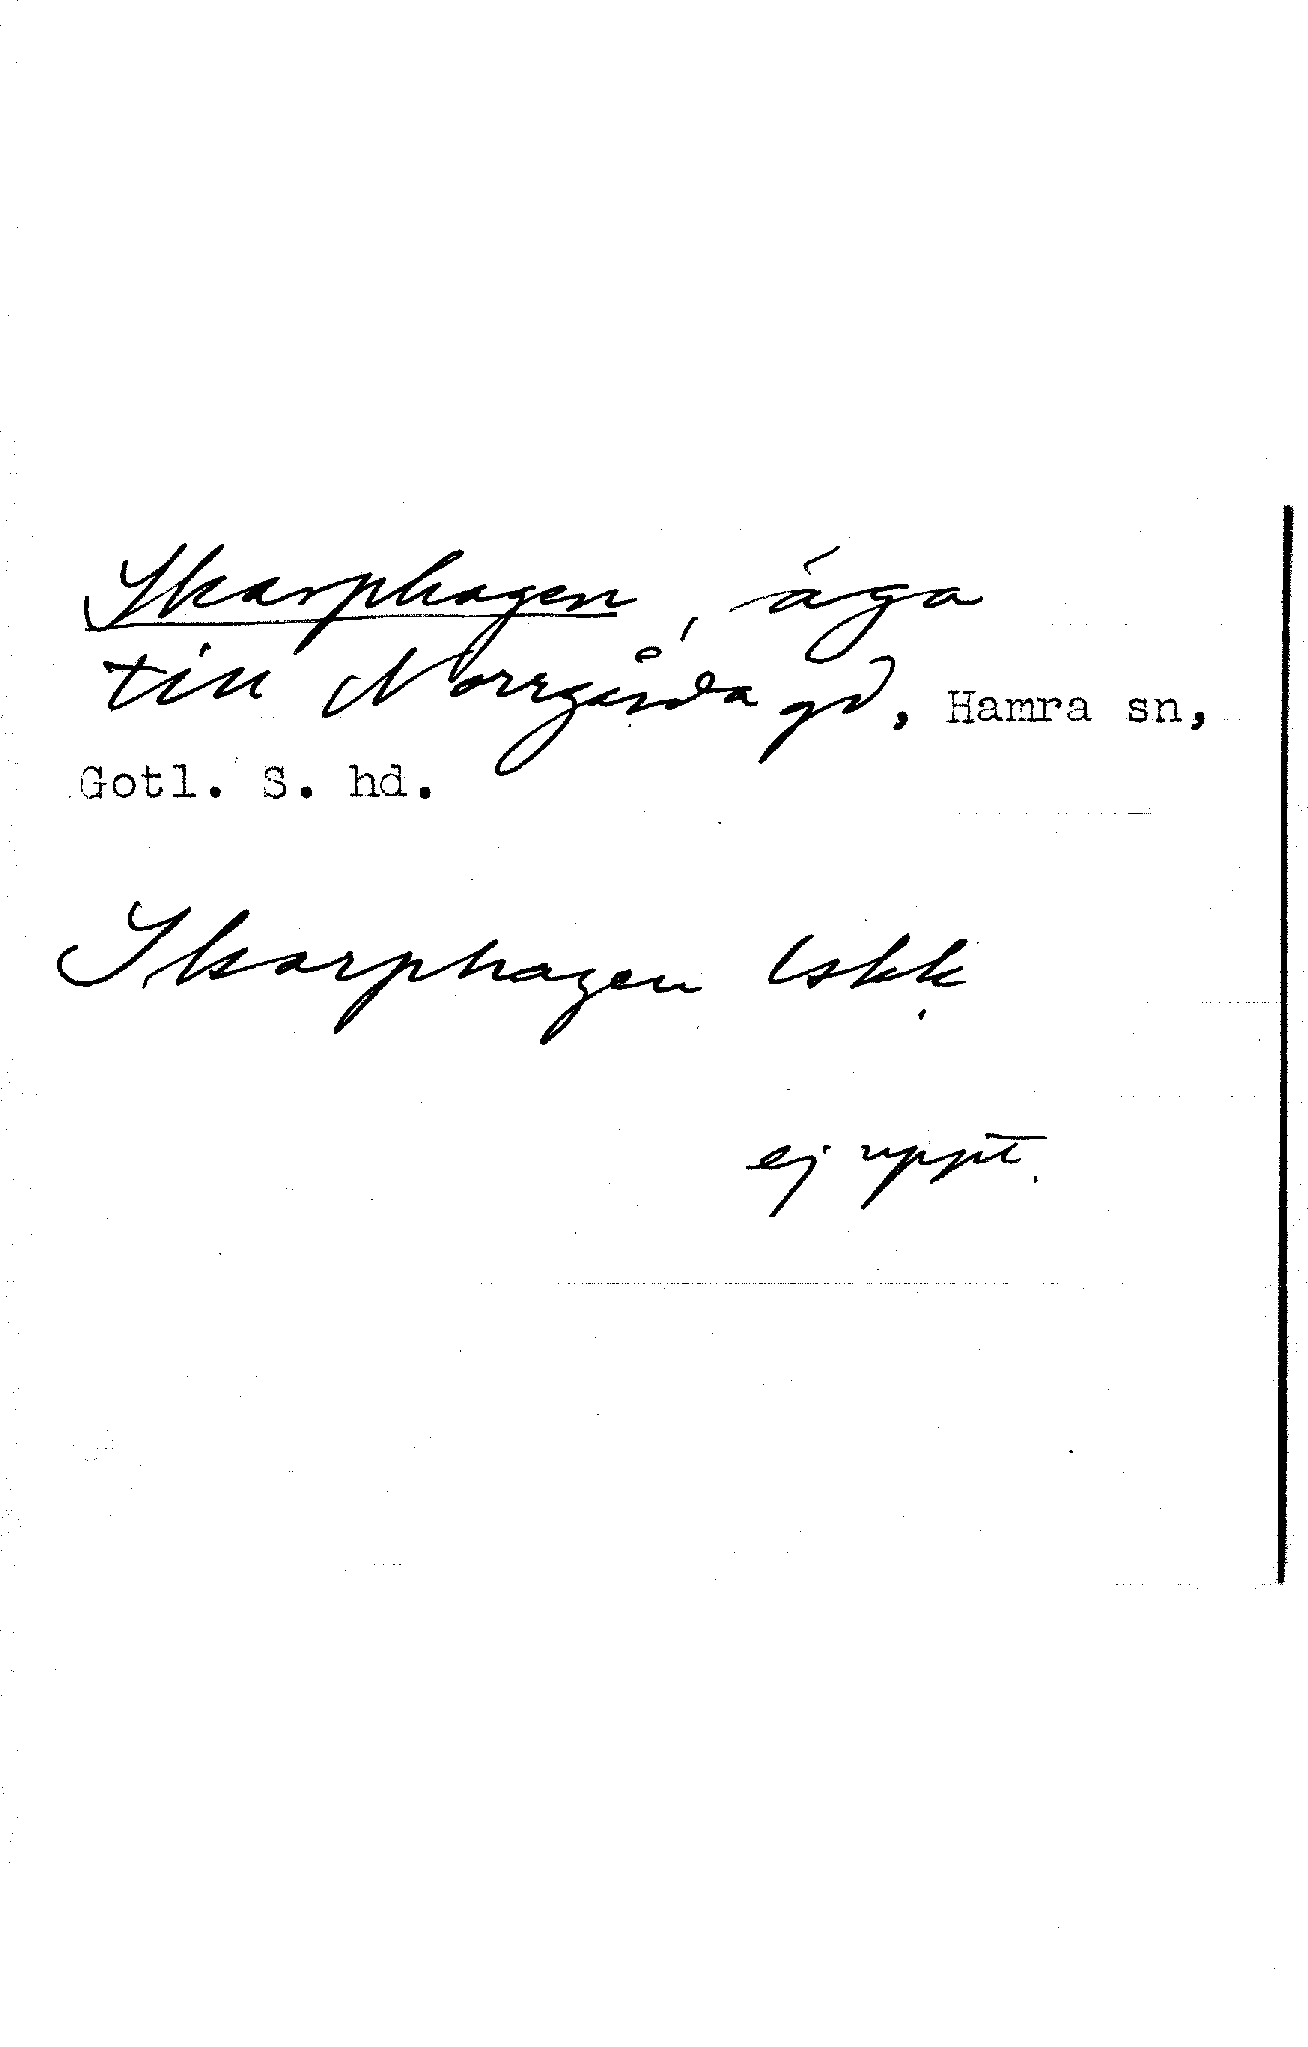 Skarphagen, äga
till Norrgårda gd, Hamra sn,
Gotl. S. hd.
Skarphagen Lskk
ej uppt.